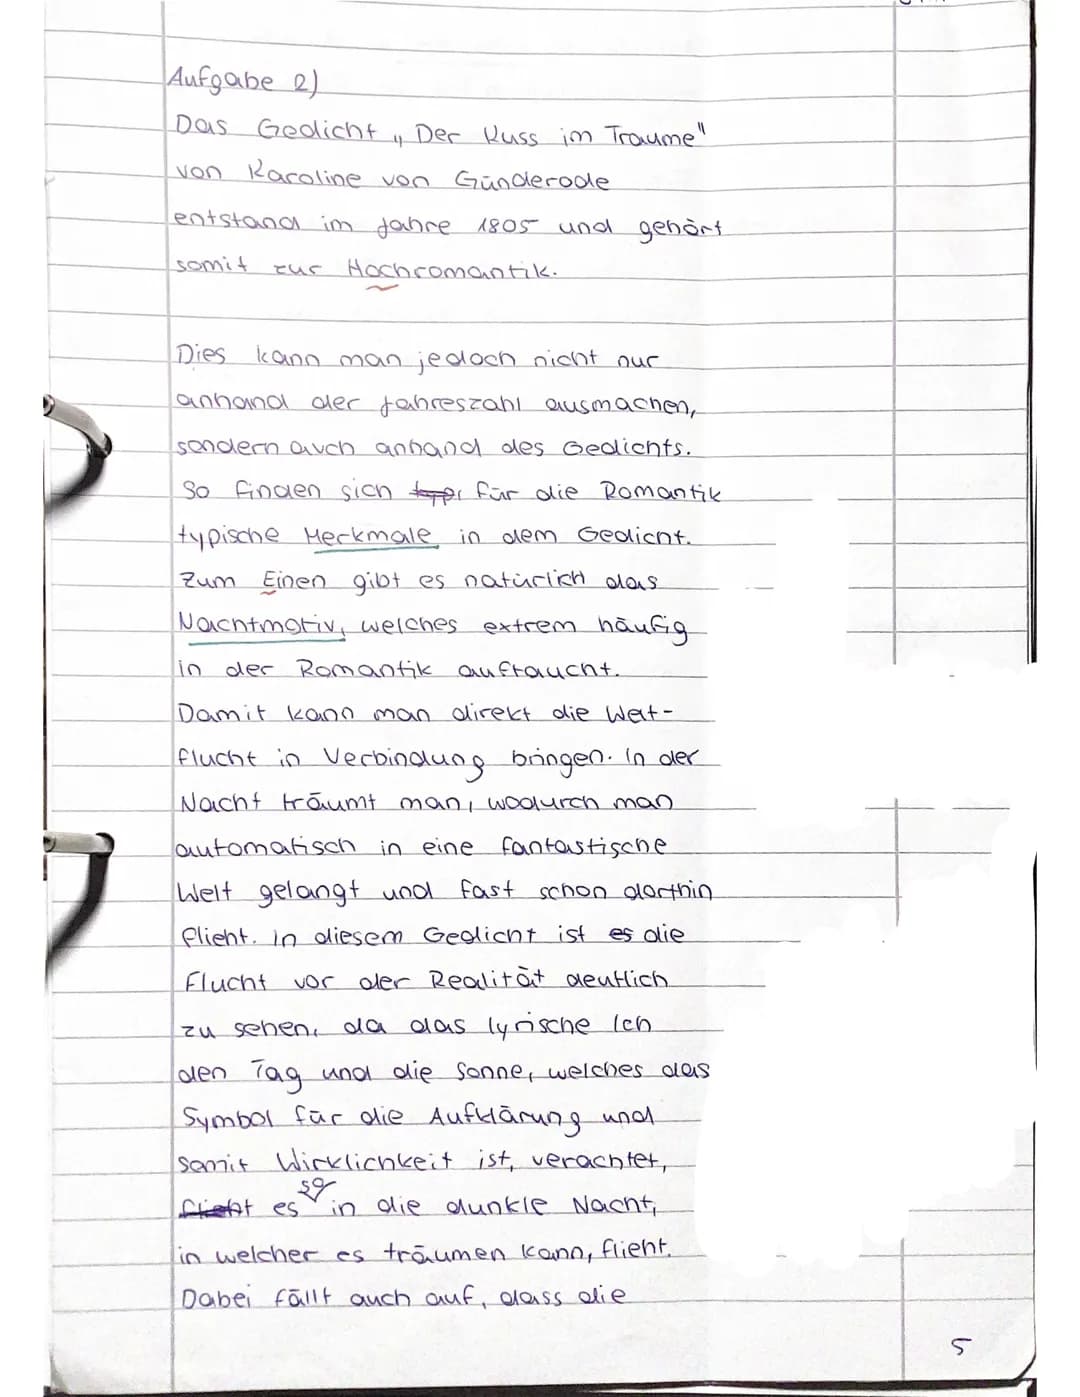 Aufgabe 2)
Das Gedicht „Der Kuss im Traume"
von Karoline von Günderode
entstand im Jahre 1805 und gehört
somit zur Hochromantik.
Dies kann man jedoch nicht nur
anhand der Jahreszahl ausmachen,
sondern auch anhand des Gedichts.
So finden sich für die Romantik
typische Merkmale in dem Gedicht.
Zum Einen gibt es natürlich das
Nachtmotiv, welches extrem häufig
in der Romantik auftaucht.
Damit kann man direkt die Welt-
flucht in Verbindung bringen. In der
Nacht träumt man, wodurch man
automatisch in eine fantastische
Welt gelangt und fast schon dorthin
flieht. In diesem Gedicht ist es die
Flucht vor der Realität deutlich
zu sehen, da das lyrische Ich
den Tag und die Sonne, welches das
Symbol für die Aufklärung und
somit Wirklichkeit ist, verachtet,
flieht es so in die dunkle Nacht,
in welcher es träumen kann, flieht.
Dabei fällt auch auf, dass die
5